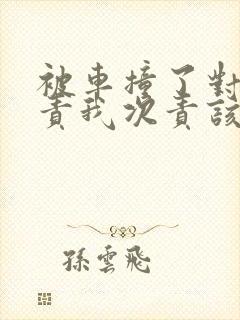 被車撞了對
責我次責該
孫雲飛